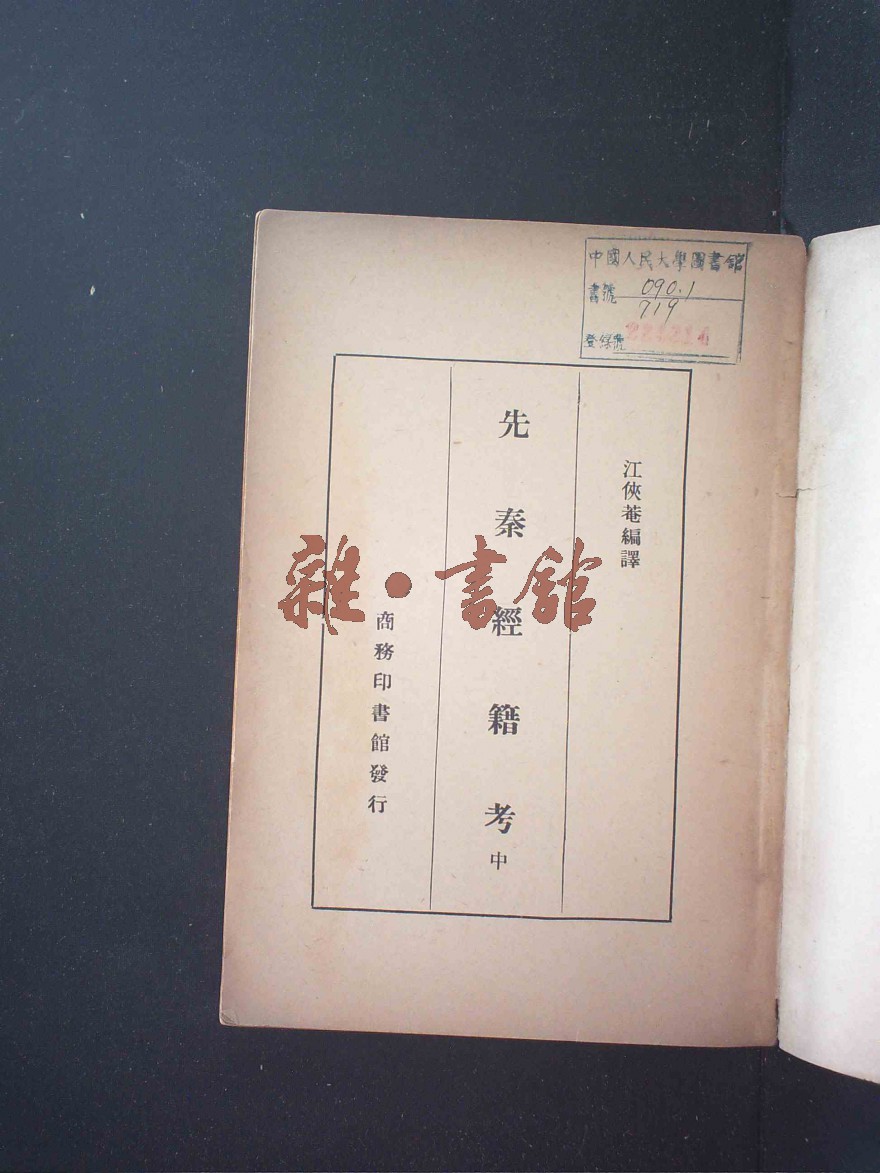 中國人民大學圖書館
書號 090.1
919
登錄號
江俠菴編譯
先秦經籍考 中
商務印書館發行
雜·書館